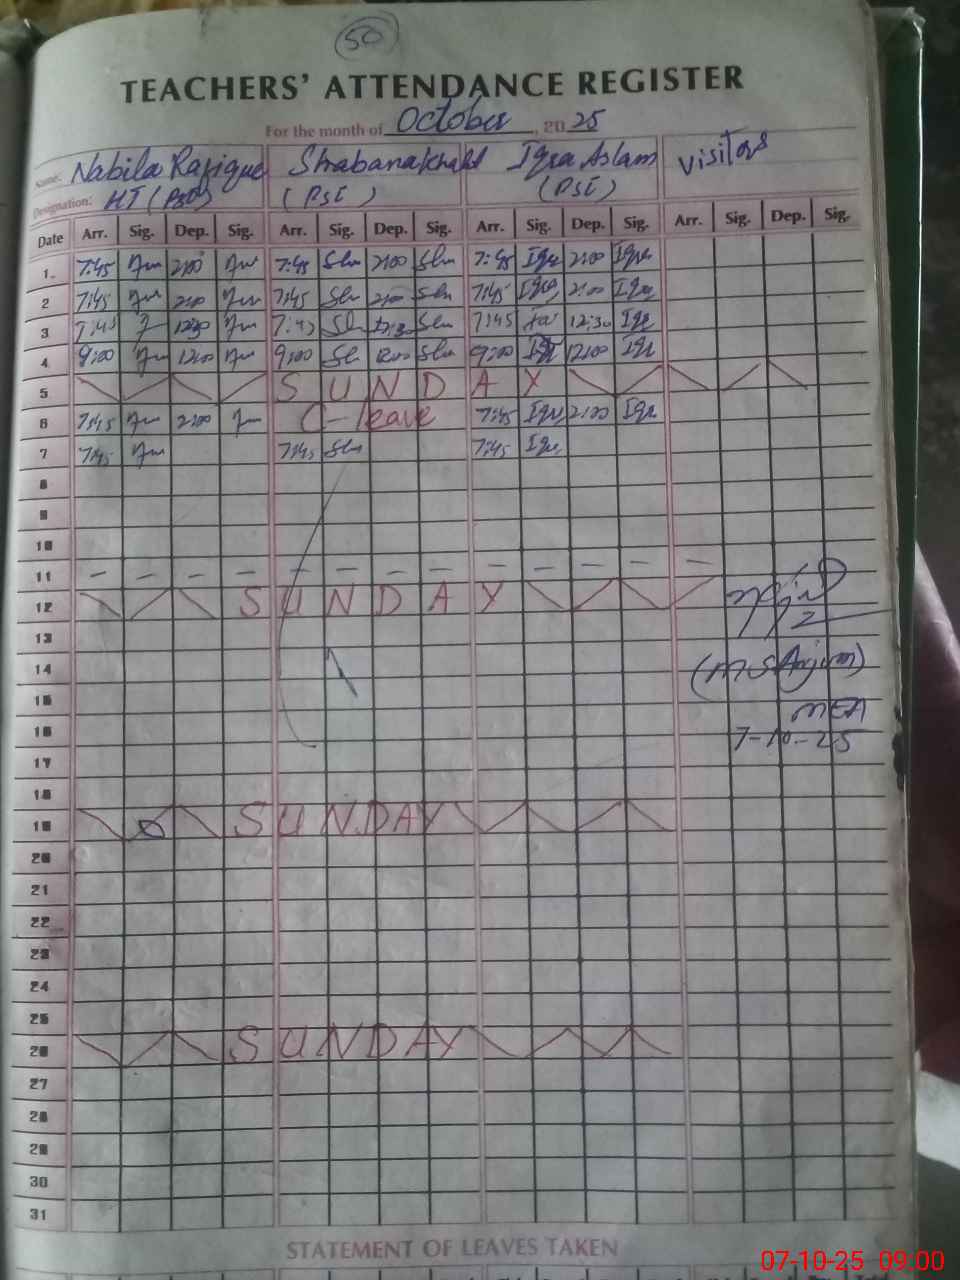 50
TEACHERS' ATTENDANCE REGISTER
For the month of October, 2025
Name: Nabila Rafique Shabana Khalid Iqra Aslam Visitors
Designation: HT (PSE) (PSE) (PSE)
Date Arr. Sig. Dep. Sig. Arr. Sig. Dep. Sig. Arr. Sig. Dep. Sig. Arr. Sig. Dep. Sig.
1 7:45 2:00 7:45 Shn 2:00 Shn 7:45 Iqra 2:00 Iqra
2 7:45 2:00 7:45 Shn 2:00 Shn 7:45 Iqra 2:00 Iqra
3 7:45 12:30 7:45 Shn 12:30 Shn 7:45 12:30 Iqr
4 9:00 12:00 9:00 Sh 12:00 Shn 9:00 Iqr 12:00 Iqr
5 SUNDAY
6 7:45 2:00 C-leave 7:45 Iqra 2:00 Iqra
7 7:45 7:45 Shn 7:45 Iqra
8
9
10
11
12 SUNDAY
13
14 (M S Anjum)
15
16 MEA
17 7-10-25
18
19 SUNDAY
20
21
22
23
24
25
26 SUNDAY
27
28
29
30
31
STATEMENT OF LEAVES TAKEN
07-10-25 09:00